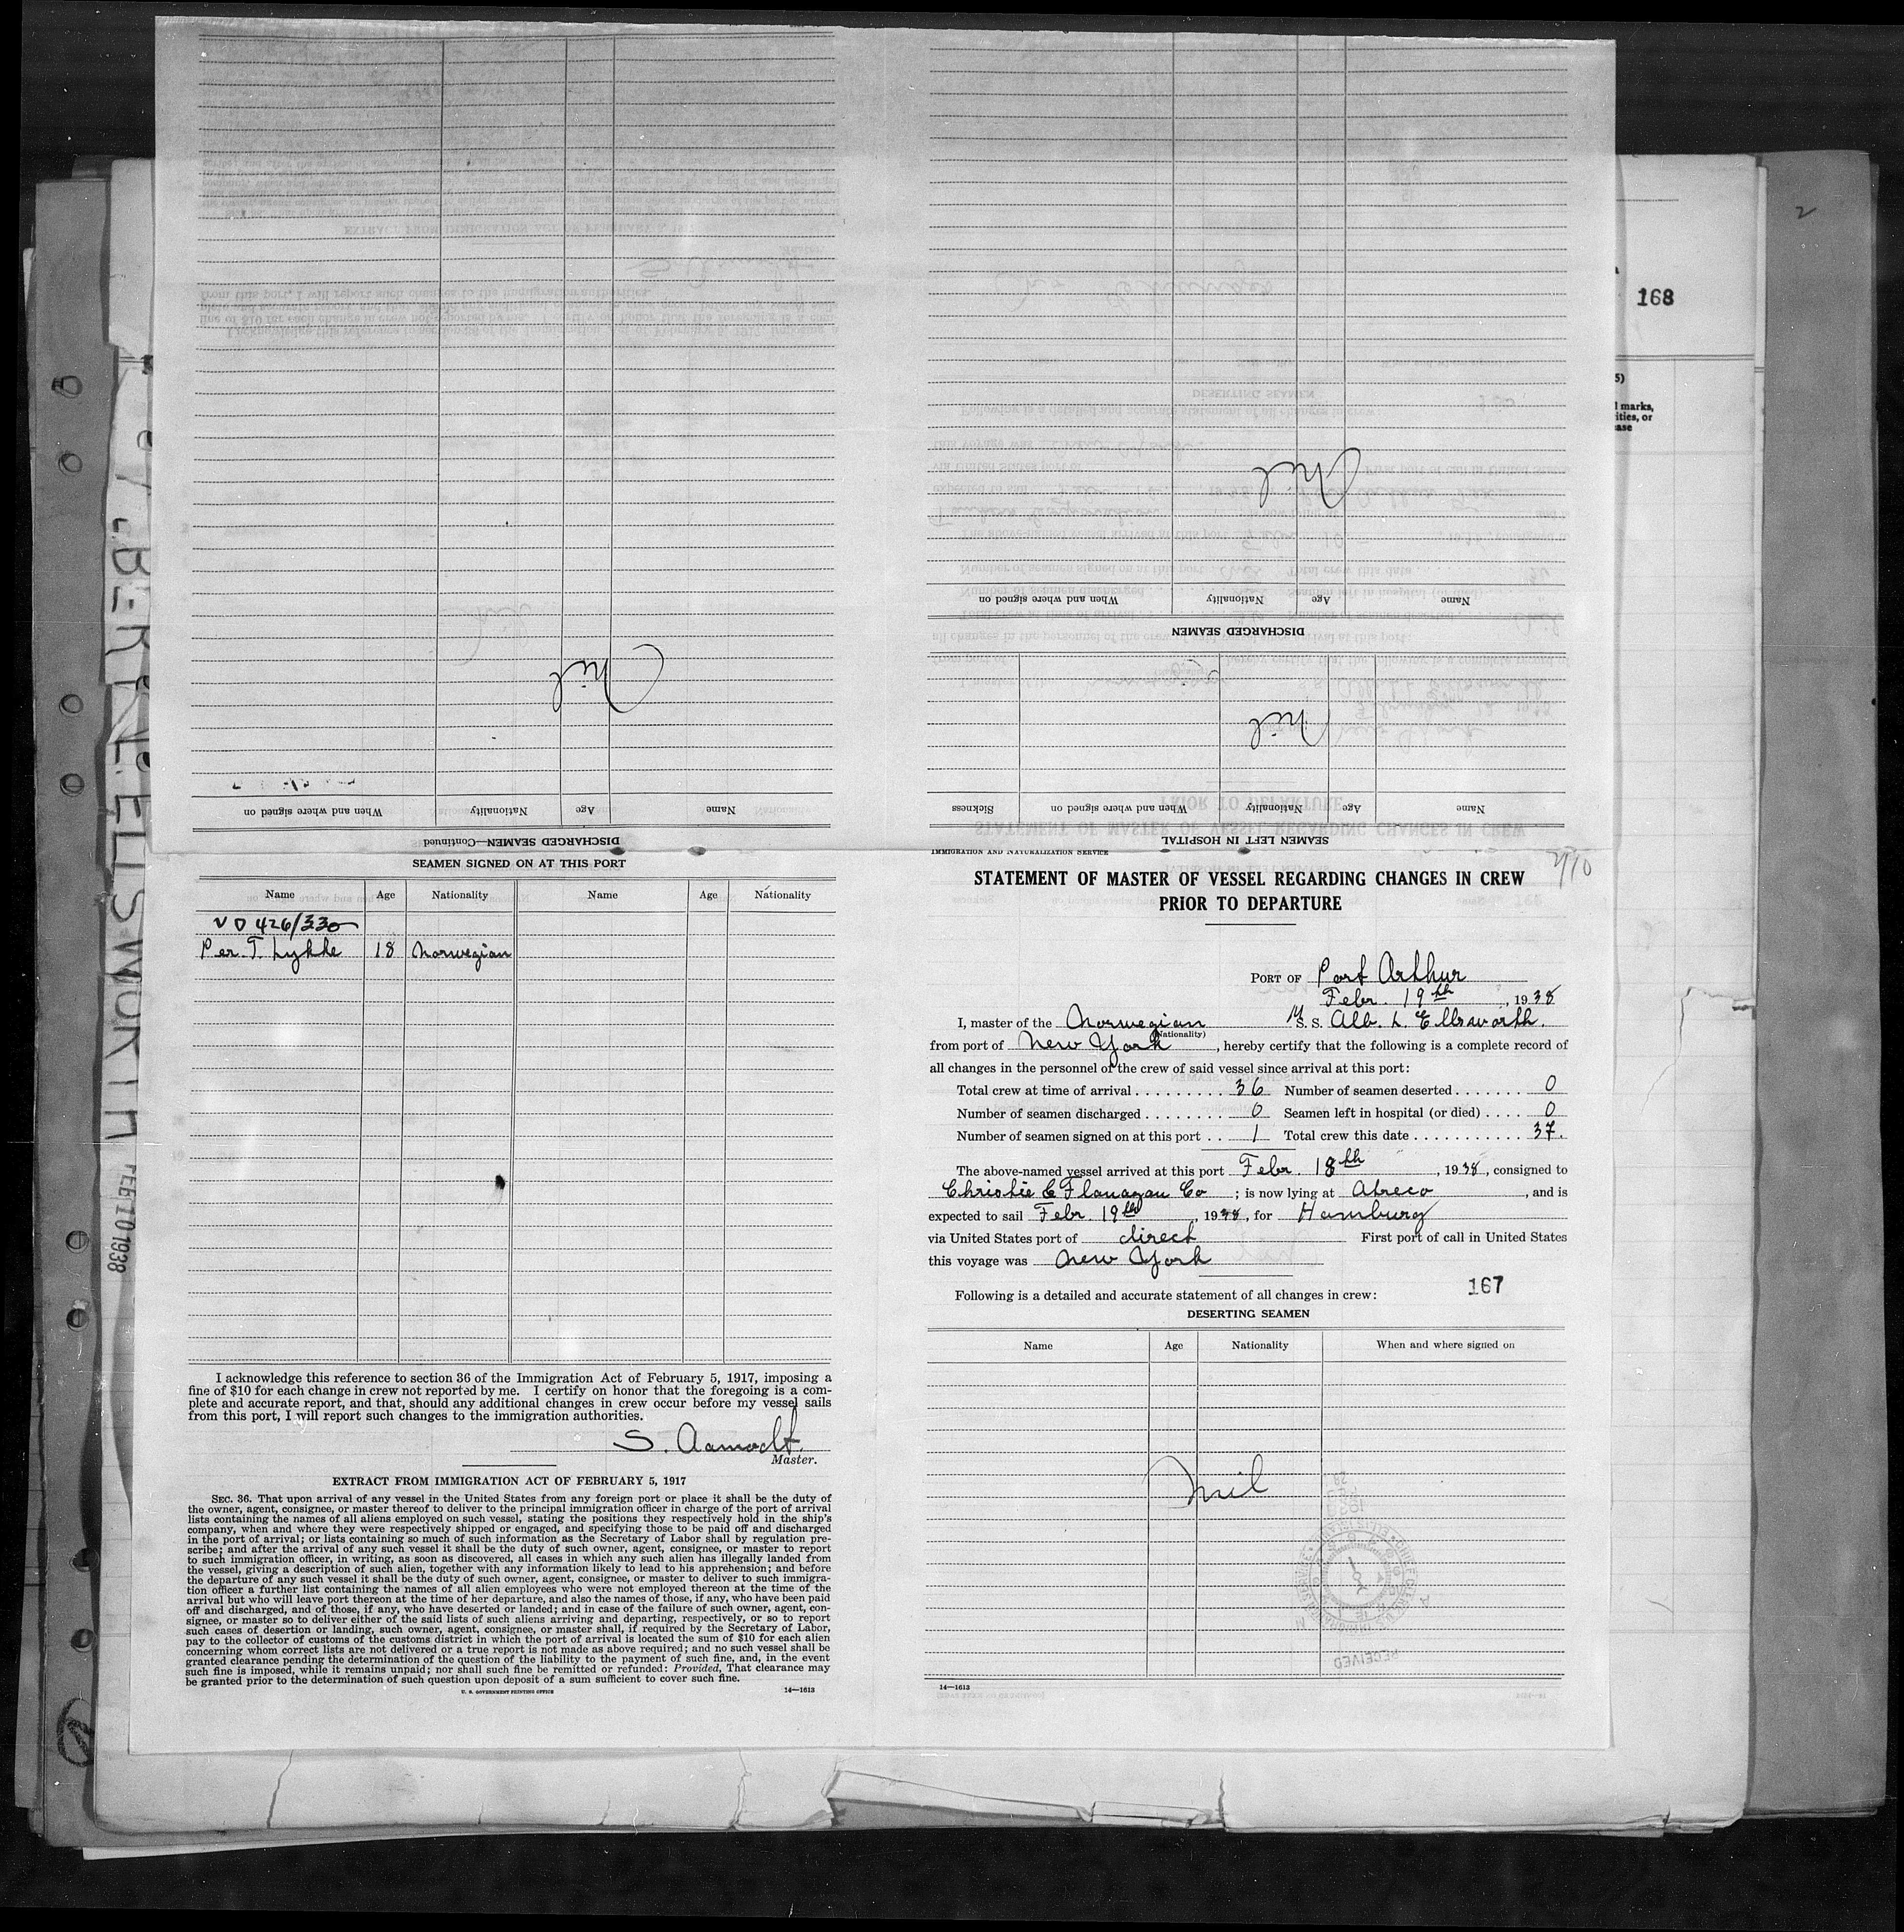 Name
Age
Nationality
When and where signed on
DISCHARGED SEAMEN—Continued
Nil
DISCHARGED SEAMEN
Name
Age
Nationality
When and where signed on
Nil
SEAMEN LEFT IN HOSPITAL
Name
Age
Nationality
When and where signed on
Sickness
Nil
2
168
5)
marks,
ities, or
ease
FEB 10 1938
SEAMEN SIGNED ON AT THIS PORT
Name Age Nationality Name Age Nationality
V D 426/330
Per. T. Lykke 18 Norwegian
I acknowledge this reference to section 36 of the Immigration Act of February 5, 1917, imposing a
fine of $10 for each change in crew not reported by me. I certify on honor that the foregoing is a com-
plete and accurate report, and that, should any additional changes in crew occur before my vessel sails
from this port, I will report such changes to the immigration authorities.
S. Aamodt.
Master.
EXTRACT FROM IMMIGRATION ACT OF FEBRUARY 5, 1917
SEC. 36. That upon arrival of any vessel in the United States from any foreign port or place it shall be the duty of
the owner, agent, consignee, or master thereof to deliver to the principal immigration officer in charge of the port of arrival
lists containing the names of all aliens employed on such vessel, stating the positions they respectively hold in the ship's
company, when and where they were respectively shipped or engaged, and specifying those to be paid off and discharged
in the port of arrival; or lists containing so much of such information as the Secretary of Labor shall by regulation pre-
scribe; and after the arrival of any such vessel it shall be the duty of such owner, agent, consignee, or master to report
to such immigration officer, in writing, as soon as discovered, all cases in which any such alien has illegally landed from
the vessel, giving a description of such alien, together with any information likely to lead to his apprehension; and before
the departure of any such vessel it shall be the duty of such owner, agent, consignee, or master to deliver to such immigra-
tion officer a further list containing the names of all alien employees who were not employed thereon at the time of the
arrival but who will leave port thereon at the time of her departure, and also the names of those, if any, who have been paid
off and discharged, and of those, if any, who have deserted or landed; and in case of the failure of such owner, agent, con-
signee, or master so to deliver either of the said lists of such aliens arriving and departing, respectively, or so to report
such cases of desertion or landing, such owner, agent, consignee, or master shall, if required by the Secretary of Labor,
pay to the collector of customs of the customs district in which the port of arrival is located the sum of $10 for each alien
concerning whom correct lists are not delivered or a true report is not made as above required; and no such vessel shall be
granted clearance pending the determination of the question of the liability to the payment of such fine, and, in the event
such fine is imposed, while it remains unpaid; nor shall such fine be remitted or refunded: Provided, That clearance may
be granted prior to the determination of such question upon deposit of a sum sufficient to cover such fine.
U. S. GOVERNMENT PRINTING OFFICE 14—1613
IMMIGRATION AND NATURALIZATION SERVICE
STATEMENT OF MASTER OF VESSEL REGARDING CHANGES IN CREW
PRIOR TO DEPARTURE
PORT OF Port Arthur
Febr. 19th, 1938
I, master of the Norwegian M S. S. Alb. L. Ellsworth.
(Nationality)
from port of New York, hereby certify that the following is a complete record of
all changes in the personnel of the crew of said vessel since arrival at this port:
Total crew at time of arrival 36 Number of seamen deserted 0
Number of seamen discharged 0 Seamen left in hospital (or died) 0
Number of seamen signed on at this port 1 Total crew this date 37.
The above-named vessel arrived at this port Febr. 18th, 1938, consigned to
Christie & Flanagan Co ; is now lying at Atreco, and is
expected to sail Febr. 19th, 1938, for Hamburg
via United States port of direct First port of call in United States
this voyage was New York
167
Following is a detailed and accurate statement of all changes in crew:
DESERTING SEAMEN
Name Age Nationality When and where signed on
Nil
RECEIVED
14—1613